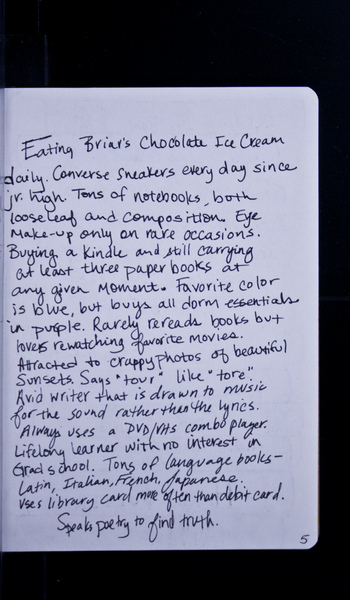 Eating Briar's Chocolate Ice Cream
daily. Converse sneakers every day since
jr. high. Tons of notebooks, both
looseleaf and composition. Eye
Make-up only on rare occasions.
Buying a Kindle and still carrying
at least three paper books at
any given moment. Favorite color
is blue, but buys all dorm essentials
in purple. Rarely rereads books but
loves rewatching favorite movies.
Attracted to crappy photos of beautiful
Sunsets. Says "tour" like "tore."
Avid writer that is drawn to music
for the sound rather than the lyrics.
Always uses a DVD/VHS combo player.
Lifelong learner with no interest in
Grad school. Tons of language books-
Latin, Italian, French, Japanese.
Uses library card more often than debit card.
Speaks poetry to find truth.
5